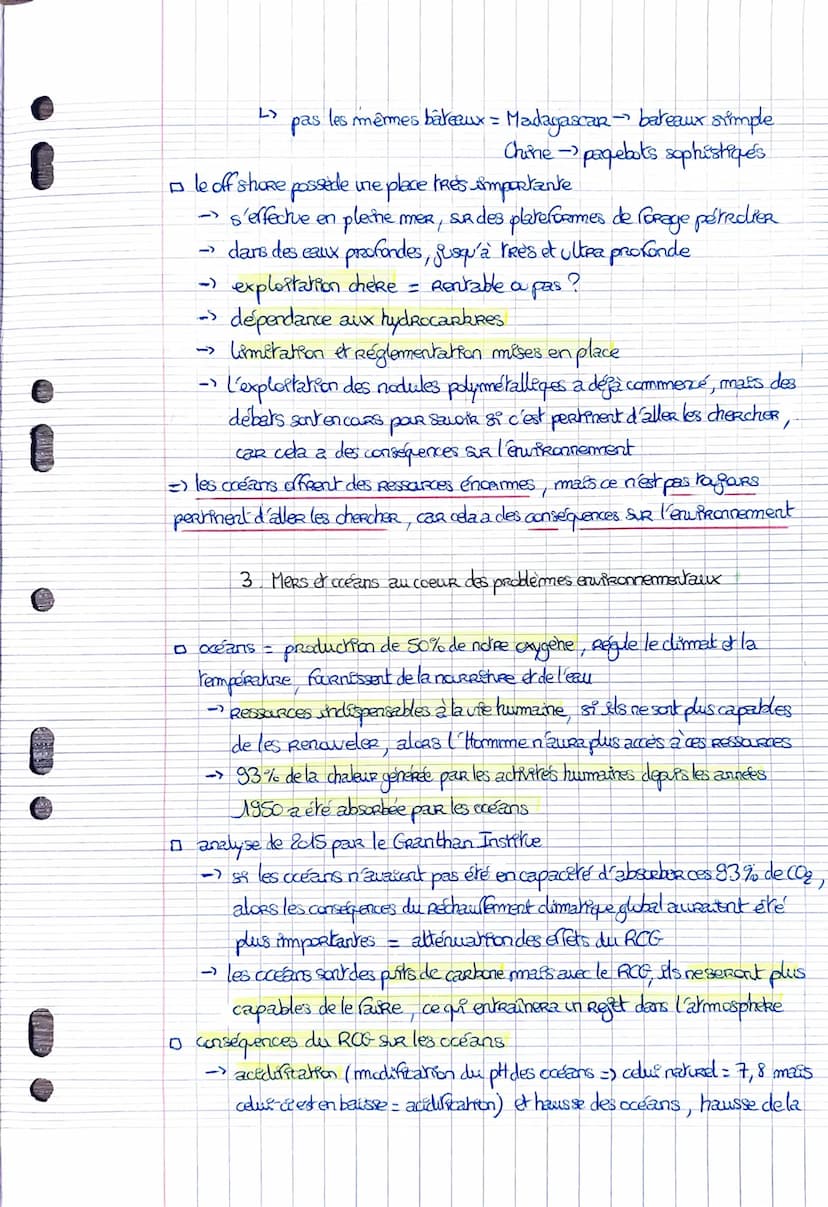 ↳ pas les mêmes bâteaux = Madagascar → bateaux simple
Chine → paquebots sophistiqués
□ le offshore possède une place très importante
→ s'effectue en pleine mer, sur des plateformes de forage pétrolier
→ dans des eaux profondes, jusqu'à très et ultra profonde
→ exploitation chère = Rentable ou pas ?
→ dépendance aux hydrocarbures
→ limitation et réglementation mises en place
→ l'exploitation des nodules polymétalliques a déjà commencé, mais des
débats sont en cours pour savoir si c'est pertinent d'aller les chercher,
car cela a des conséquences sur l'environnement
=> les océans offrent des ressources énormes, mais ce n'est pas toujours
pertinent d'aller les chercher, car cela a des conséquences sur l'environnement
3. Mers et océans au coeur des problèmes environnementaux
□ océans = production de 50% de notre oxygène, régule le climat et la
température, fournissent de la nourriture et de l'eau
→ Ressources indispensables à la vie humaine, si ils ne sont plus capables
de les renouveler, alors l'Homme n'aura plus accès à ces ressources
→ 93% de la chaleur générée par les activités humaines depuis les années
1950 a été absorbée par les océans
□ analyse de 2015 par le Granthan Institue
→ si les océans n'avaient pas été en capacité d'absorber ces 93% de CO2,
alors les conséquences du réchauffement climatique global auraient été
plus importantes = atténuation des effets du RCG
→ les océans sont des puits de carbone mais avec le RCG, ils ne seront plus
capables de le faire, ce qui entraînera un rejet dans l'atmosphère
□ conséquences du RCG sur les océans
→ acidification (modification du pH des océans => celui naturel = 7,8 mais
celui-ci est en baisse = acidification) et hausse des océans, hausse de la